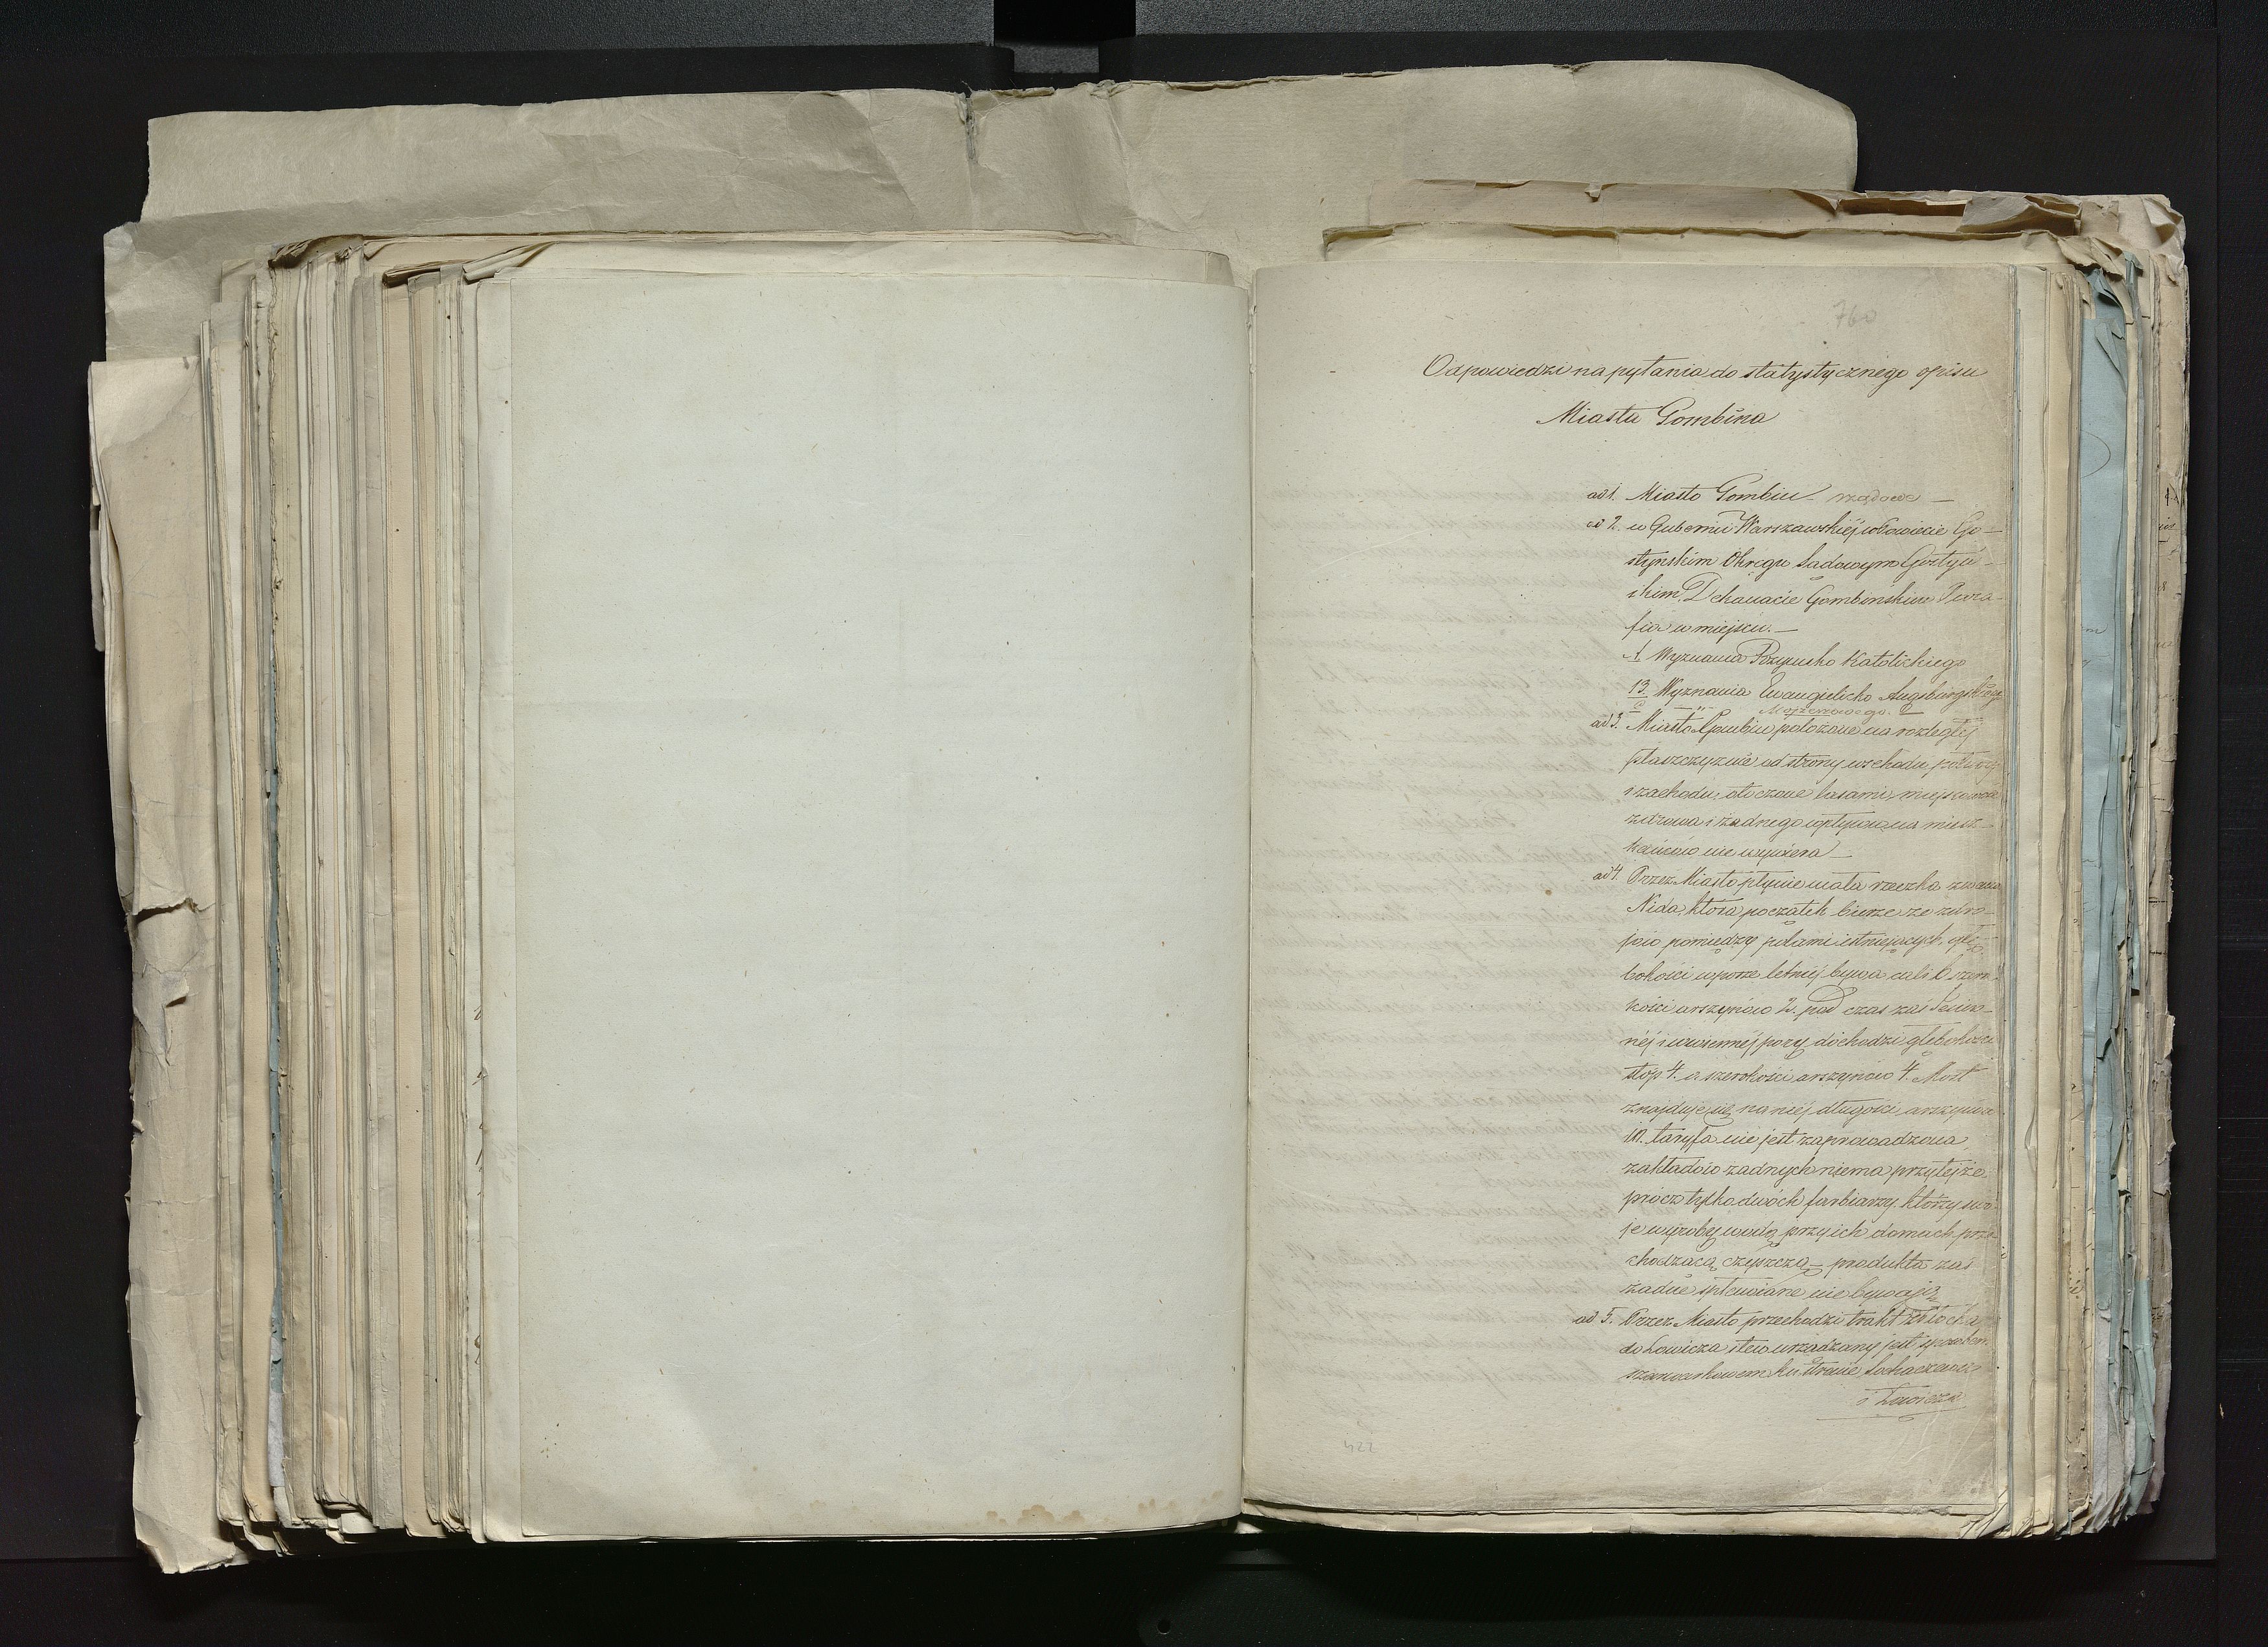 760
Odpowiedzi na pytania do statystycznego opisu
Miasta Gombina
ad 1. Miasto Gombin rządowe —
ad 2. w Gubernii Warszawskiéj w Powiecie Go-
styńskim Okręgu Sądowym Gostyń-
skim Dekanacie Gombińskim Para-
fia w miejscu. —
A Wyznania Rzymsko Katolickiego
B. Wyznania Ewangelicko Augsburgskiego
C " " Mojżeszowego.
ad 3. Miasto Gombin położone na rozległéj
płaszczyznie od strony wschodu północy
i zachodu, otoczone lasami, miejscowość
zdrowa i żadnego wpływu na miesz-
kańców nie wywiera —
ad 4. Przez Miasto płynie mała rzeczka zwana
Nida, która początek bierze ze zdro-
jów pomiędzy polami istniejących, głę-
bokości w porze letniéj bywa cali 6 szero-
kości arszynów 2. pod czas zaś Jesien-
néj i wiosennéj pory dochodzi głębokości
stóp 4. a szerokości arszynów 4. Most
znajduje się na niéj długości arszynów
10. taryfa nie jest zaprowadzona
zakładów żadnych niema przy tejże
prócz tylko dwóch farbiarzy, którzy swo-
je wyroby wodą przy ich domach prze-
chodzącą czyszczą — produkta zaś
żadne spławiane nie bywają
ad 5. Przez Miasto przechodzi trakt z Płocka
do Łowicza tew urządzany jest sposobem
szarwarkowem ku stronie Sochaczewa
i Łowicza
422